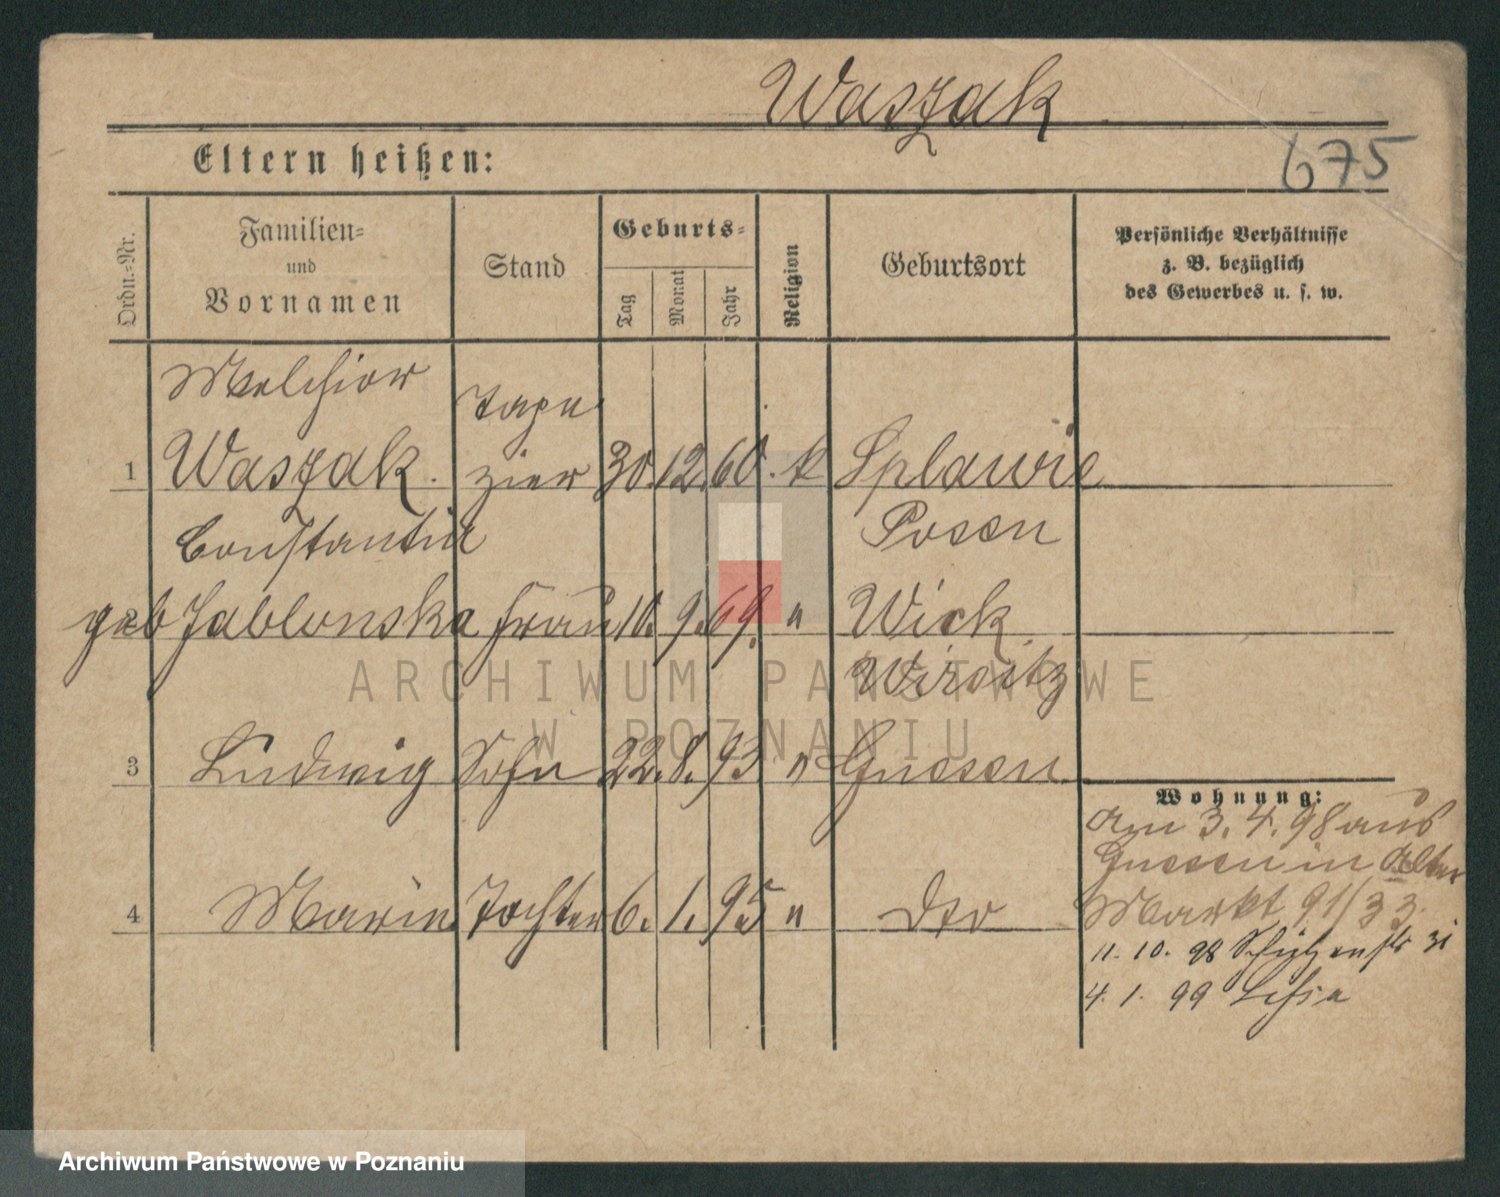 Waszak
675
Eltern heißen:
Ordn.=Nr.
Familien=
und
Vornamen
Stand
Geburts=
Tag
Monat
Jahr
Religion
Geburtsort
Persönliche Verhältnisse
z. B. bezüglich
des Gewerbes u. s. w.
Melchior
Tape
1 Waszak. zier 30. 12. 60. k Splawie
Constantia Posen
geb Jablonska Frau 10. 9. 69. " Wick
Wirsitz
3 Ludwig Sohn 22. 8. 93 " Gnesen
Wohnung:
Am 3. 4. 98 aus
Gnesen in Alter
4 Marie Tochter 6. 1. 95 " dto Markt 91/33.
11. 10. 98 Schützenstr 31
4. 1. 99
ARCHIWUM PAŃSTWOWE
W POZNANIU
Archiwum Państwowe w Poznaniu